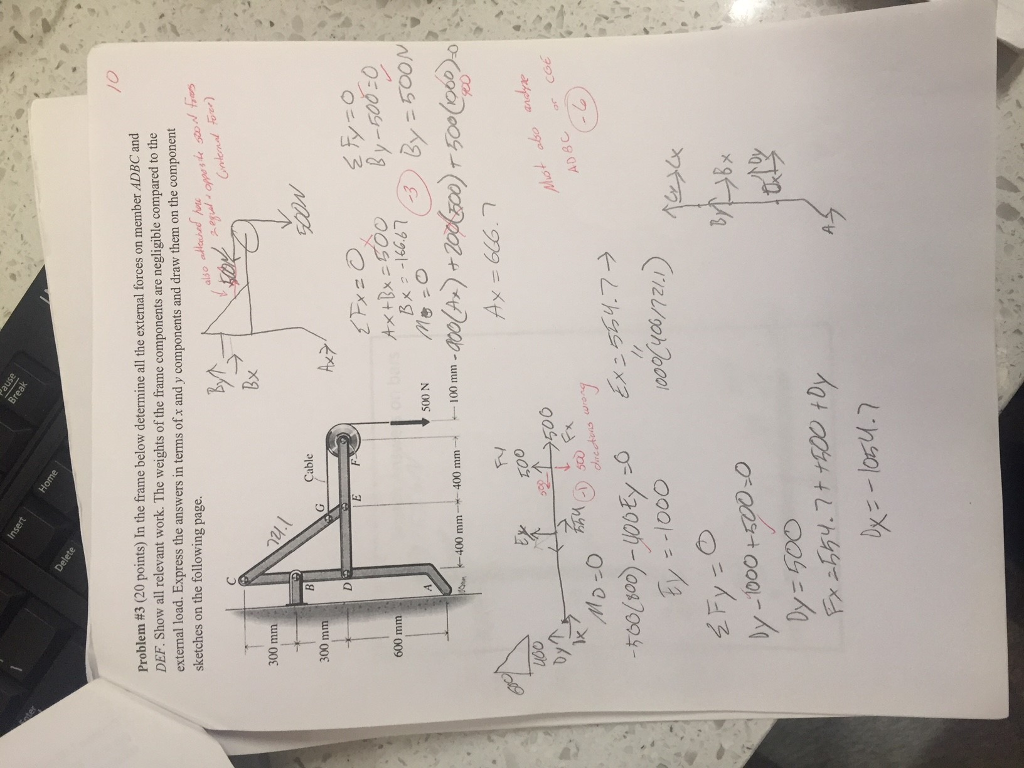 10
Problem #3 (20 points) In the frame below determine all the external forces on member ADBC and
DEF. Show all relevant work. The weights of the frame components are negligible compared to the
external load. Express the answers in terms of x and y components and draw them on the component
sketches on the following page.
C
721.1
G
Cable
B
D
E
F
A
300 mm
300 mm
600 mm
400 mm
400 mm
100 mm
500 N
also attached here
2 equal + opposite 500 N forces
(internal forces)
By
Bx
Ax
500N
ΣFx=0
Ax+Bx=500
Bx=-166.67
ΣFy=0
By-500=0
By=500N
-3
M =0
-900(Ax)+200(500)+500(1000)=0
900
Ax=666.7
Must also analyze
ADBC or CGE
-6
600
400
Dy
Dx
Ey
554
Fy
500
500
500
Fx
-1
500
directions wrong
MD=0
-500(800)-400Ey=0
Ey=-1000
Ex=554.7→
1000(400/721.1)
ΣFy=0
Dy-1000+500=0
Dy=500
Fx=554.7+500+Dy
Dx=-1054.7
Cy
Cx
By
Bx
Dy
Dx
A